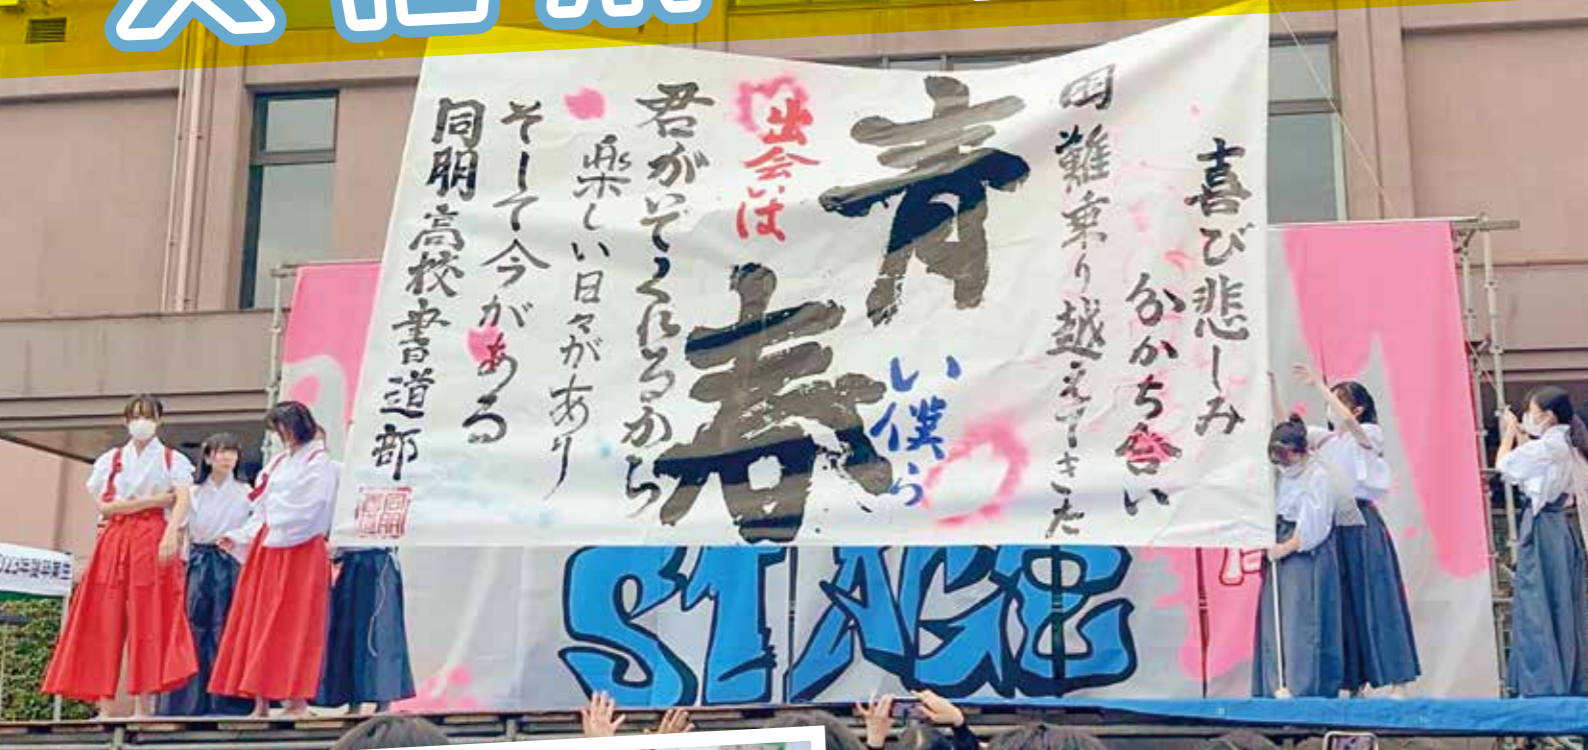 喜び悲しみ
分かち合い
困難乗り越えてきた
青い僕ら
出会いは春
君がいてくれるから
楽しい日々があり
そして今がある
同朋高校書道部
STAGE